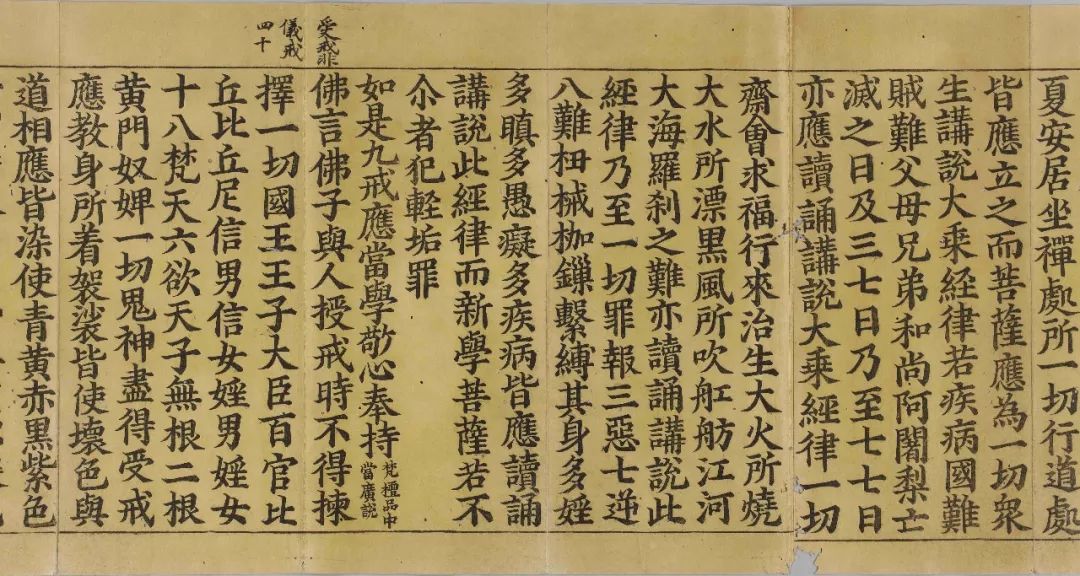 夏安居坐禪處所一切行道處
皆應立之而菩薩應為一切衆
生講說大乘経律若疾病國難
賊難父母兄弟和尚阿闍梨亡
滅之日及三七日乃至七七日
亦應讀誦講說大乘經律一切
齋會求福行來治生大火所燒
大水所漂黒風所吹舡舫江河
大海羅刹之難亦讀誦講說此
經律乃至一切罪報三惡七逆
八難杻械枷鏁繫縛其身多婬
多瞋多愚癡多疾病皆應讀誦
講說此經律而新學菩薩若不
尒者犯輕垢罪
如是九戒應當學敬心奉持梵檀品中當廣說
受戒非
儀戒
四十
佛言佛子與人授戒時不得揀
擇一切國王王子大臣百官比
丘比丘尼信男信女婬男婬女
十八梵天六欲天子無根二根
黄門奴婢一切鬼神盡得受戒
應教身所着袈裟皆使壞色與
道相應皆染使青黄赤黒紫色